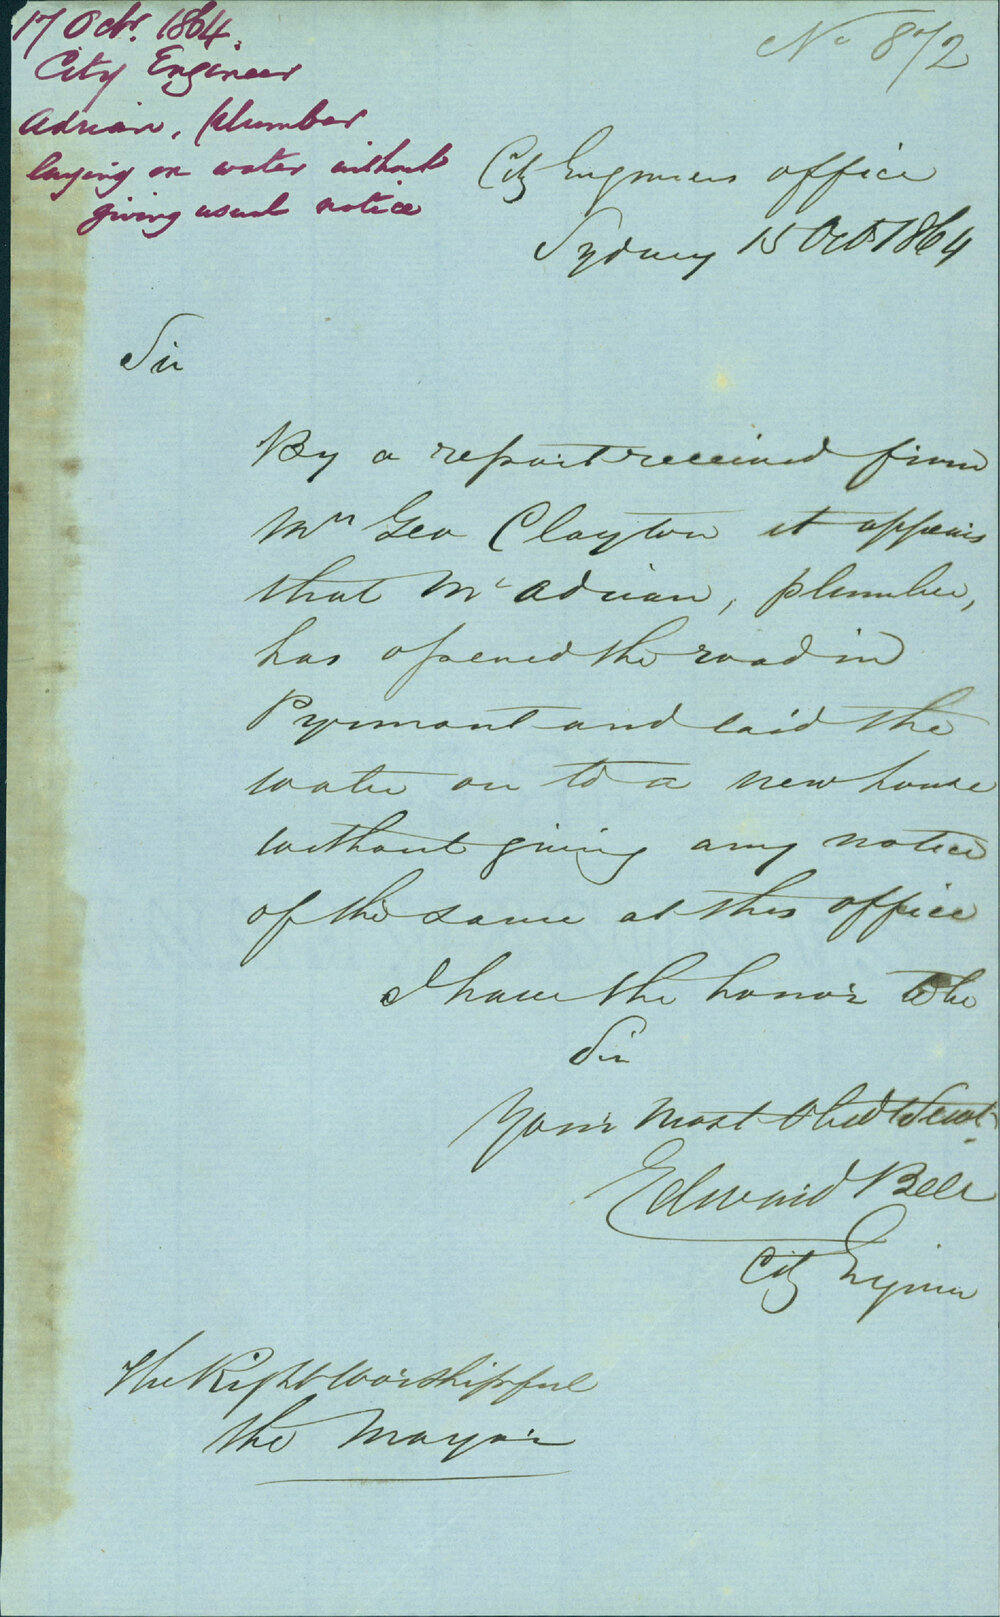 17 Octr. 1864.
City Engineer
Adrian, plumber
laying on water without
giving usual notice
No 872
City Engineers office
Sydney 15 Oct 1864
Sir
By a report received from
Mr Geo Clayton it appears
that Mr Adrian, plumber,
has opened the road in
Pyrmont and laid the
water on to a new house
without giving any notice
of the same at this office
I have the honor to be
Sir
Your most Obedt Servt
Edward Bell
City Engineer
The Right Worshipful
the Mayor